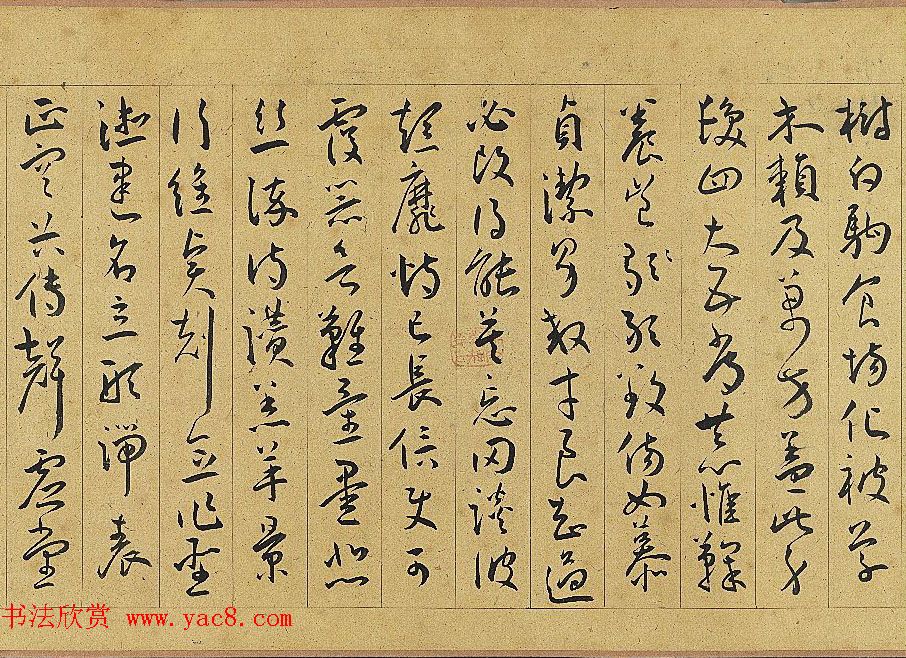 樹白駒食場化被草
木賴及萬方蓋此身
髮四大五常恭惟鞠
養豈敢敢毀傷女慕
貞潔男效才良知過
必改得能莫忘罔談彼
短靡恃己長信使可
覆器欲難量墨悲
絲染詩讚羔羊景
行維賢剋念作聖
德建名立形端表
正空谷傳聲虛堂
书法欣赏 www.yac8.com